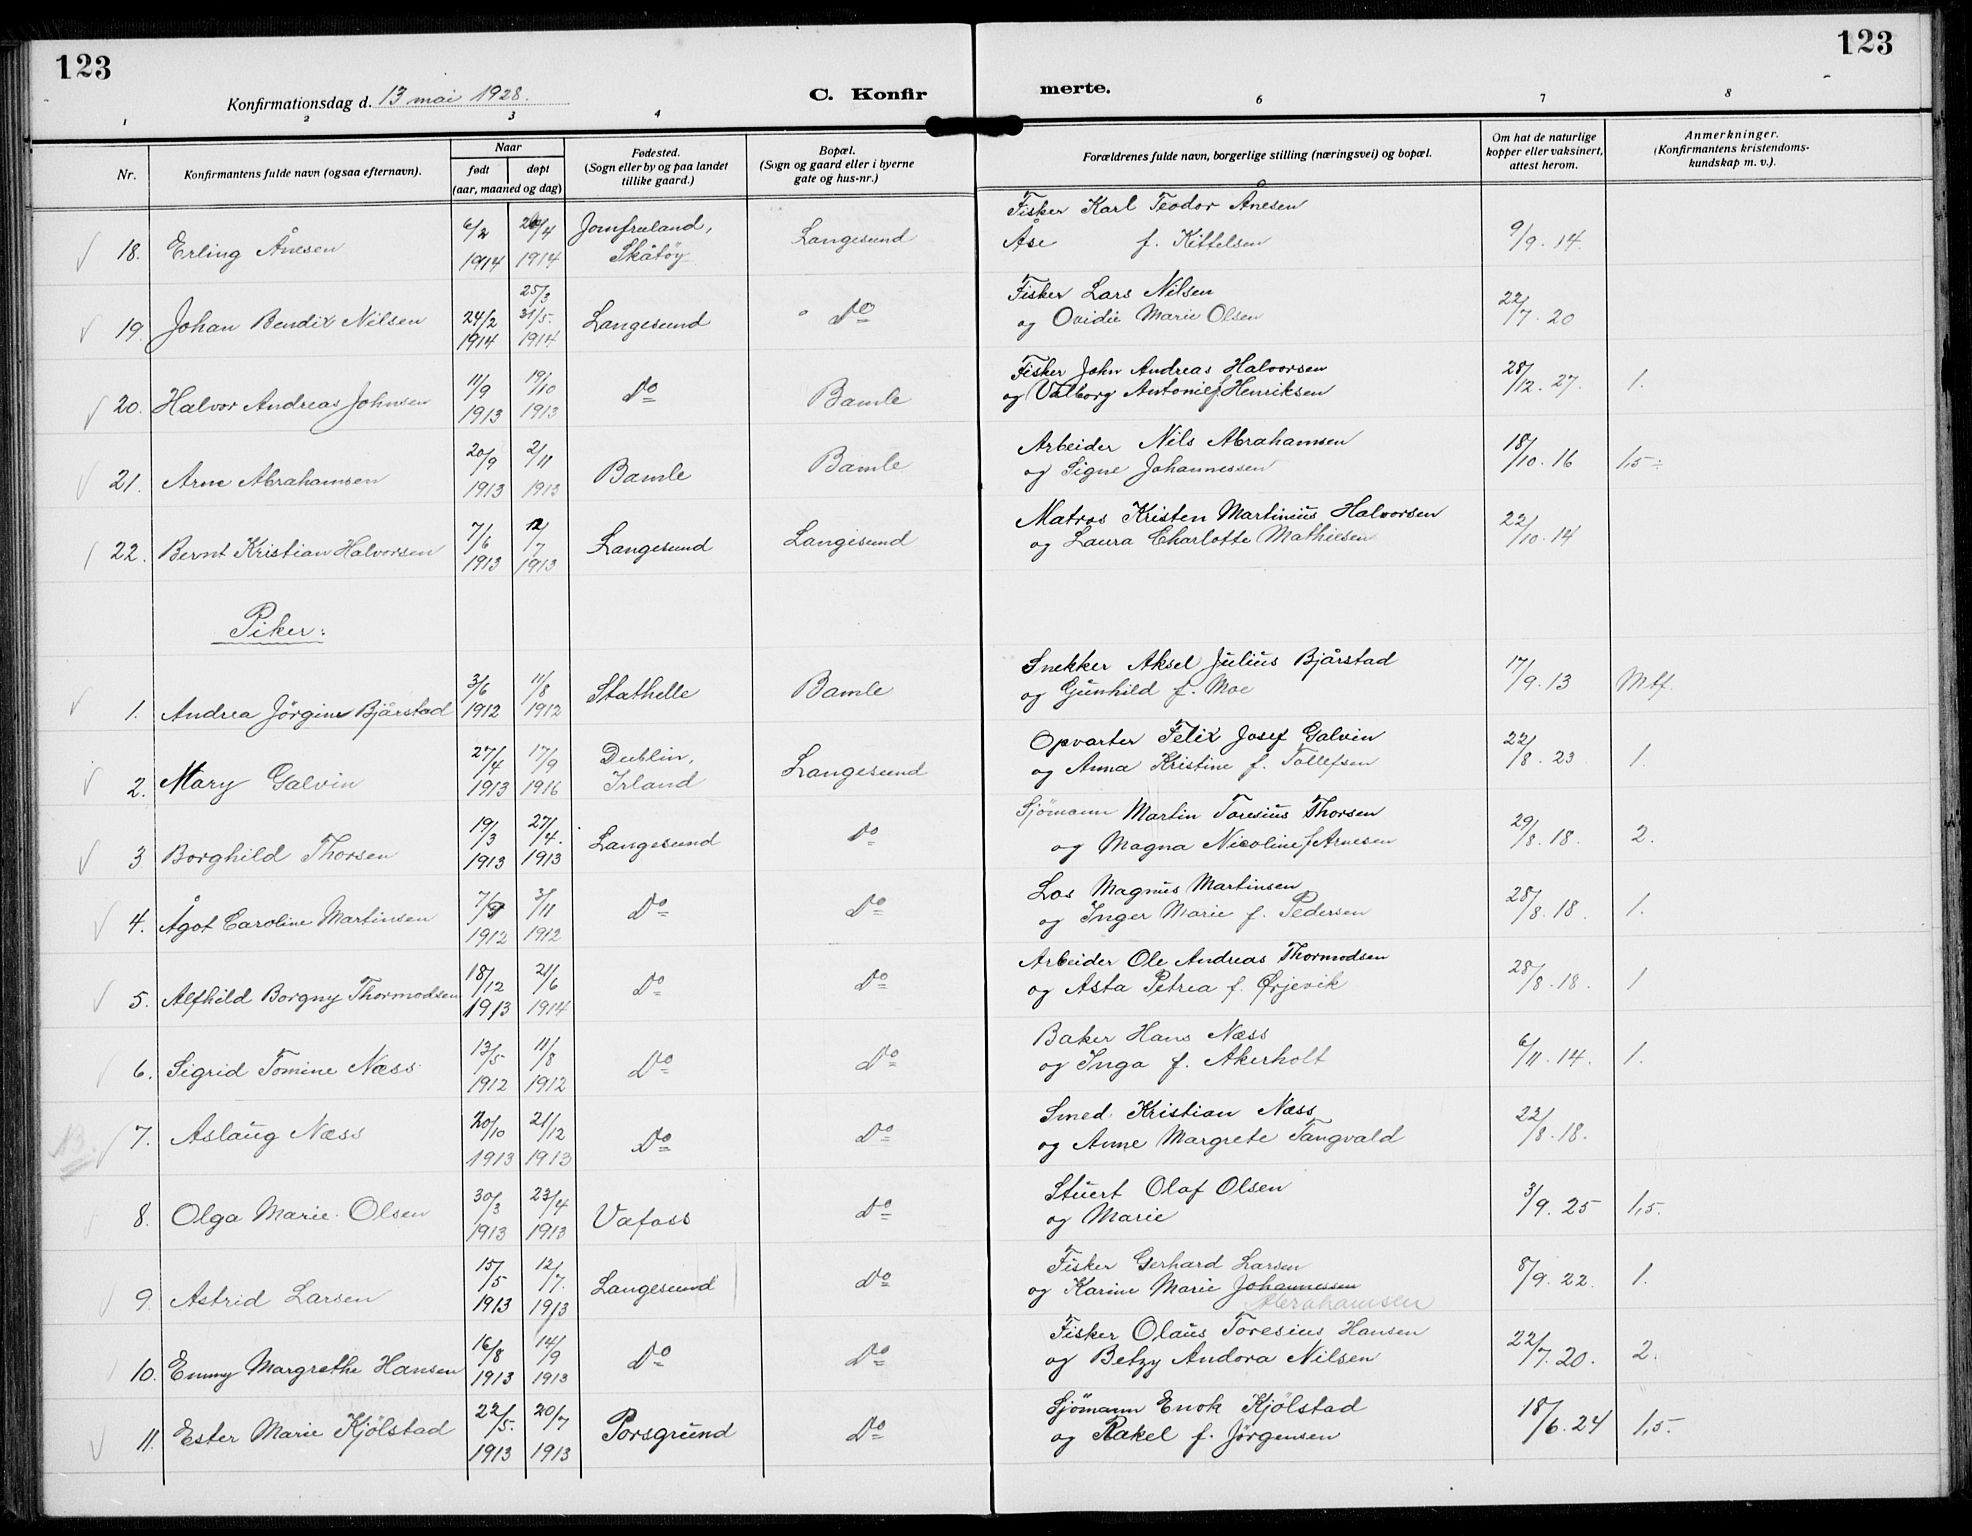 123
123
Konfirmationsdag d. 13 mai 1928.
C. Konfir merte.
1 2 3 4 6 7 8
Nr.
Konfirmantens fulde navn (ogsaa efternavn).
Naar
født døpt
(aar, maaned og dag)
Fødested.
(Sogn eller by og paa landet
tillike gaard.)
Bopæl.
(Sogn og gaard eller i byerne
gate og hus-nr.)
Forældrenes fulde navn, borgerlige stilling (næringsvei) og bopæl.
Om hat de naturlige
kopper eller vaksinert,
attest herom.
Anmerkninger.
(Konfirmantens kristendoms-
kundskap m. v.).
18. Erling Ånesen 6/2 1914 26/4 1914 Jomfruland, Skåtöy Langesund Fisker Karl Teodor Ånesen
Åse f. Kittelsen 9/9. 14.
19. Johan Bendix Nilsen 24/2 1914 25/3 31/5. 1914 Langesund Do Fisker Lars Nilsen
og Ovidie Marie Olsen 22/7. 20
20. Halvor Andreas Johnsen 11/9 1913 19/10 1913 Do Bamle Fisker John Andreas Halvorsen
og Valborg Antonie f. Henriksen 28/12. 27. 1.
21. Arne Abrahamsen 20/9 1913 2/11 1913 Bamle Bamle Arbeider Nils Abrahamsen
og Signe Johannessen 18/10. 16 1,5 ÷
22. Bernt Kristian Halvorsen 7/6 1913 12/7 1913 Langesund Langesund Matros Kristen Martinius Halvorsen
og Laura Charlotte Mathiesen 22/10. 14
Piker:
1. Andrea Jörgine Bjårstad 3/6 1912 11/8 1912 Stathelle Bamle Snekker Aksel Julius Bjårstad
og Gunhild f. Moe 17/9. 13 Mtf.
2. Mary Galvin 27/4 1913 17/9 1916 Dublin, Irland Langesund Opvarter Felix Josef Galvin
og Anna Kristine f. Tollefsen 22/8. 23 1.
3 Borghild Thorsen 19/3 1913 27/4. 1913 Langesund Do Sjömann Martin Toresius Thorsen
og Magna Nicoline f Arnesen 29/8. 18. 2.
4. Ågot Caroline Martinsen 7/9 1912 3/11 1912 Do Do Los Magnus Martinsen
og Inger Marie f. Pedersen 28/8. 18. 1.
5. Alfhild Borgny Thormodsen 18/12 1913 21/6 1914 Do Do Arbeider Ole Andreas Thormodsen
og Asta Petrea f. Ørjevik 28/8. 18. 1
6. Sigrid Tomine Næss 13/5 1912 11/8 1912 Do Do Baker Hans Næss
og Inga f. Akerholt 6/11. 14. 1.
7. Aslaug Næss 20/10 1913 21/12 1913 Do Do Smed Kristian Næss
og Anne Margrete Tangvald 22/8. 18.
8. Olga Marie Olsen 30/3 1913 23/4 1913 Vafoss Do Stuert Olaf Olsen
og Marie 3/9. 25 1,5.
9. Astrid Larsen 15/5 1913 12/7. 1913 Langesund Do Fisker Gerhard Larsen
og Karine Marie Johannessen
Abrahamsen 8/9. 22. 1.
10. Emmy Margrethe Hansen 16/8 1913 14/9 1913 Do Do Fisker Olaus Toresius Hansen
og Betzy Andora Nilsen 22/7. 20. 2.
11. Ester Marie Kjölstad 22/5. 1913 20/7 1913 Porsgrund Do Sjömann Enok Kjölstad
og Rakel f. Jörgensen 18/6. 24 1,5.